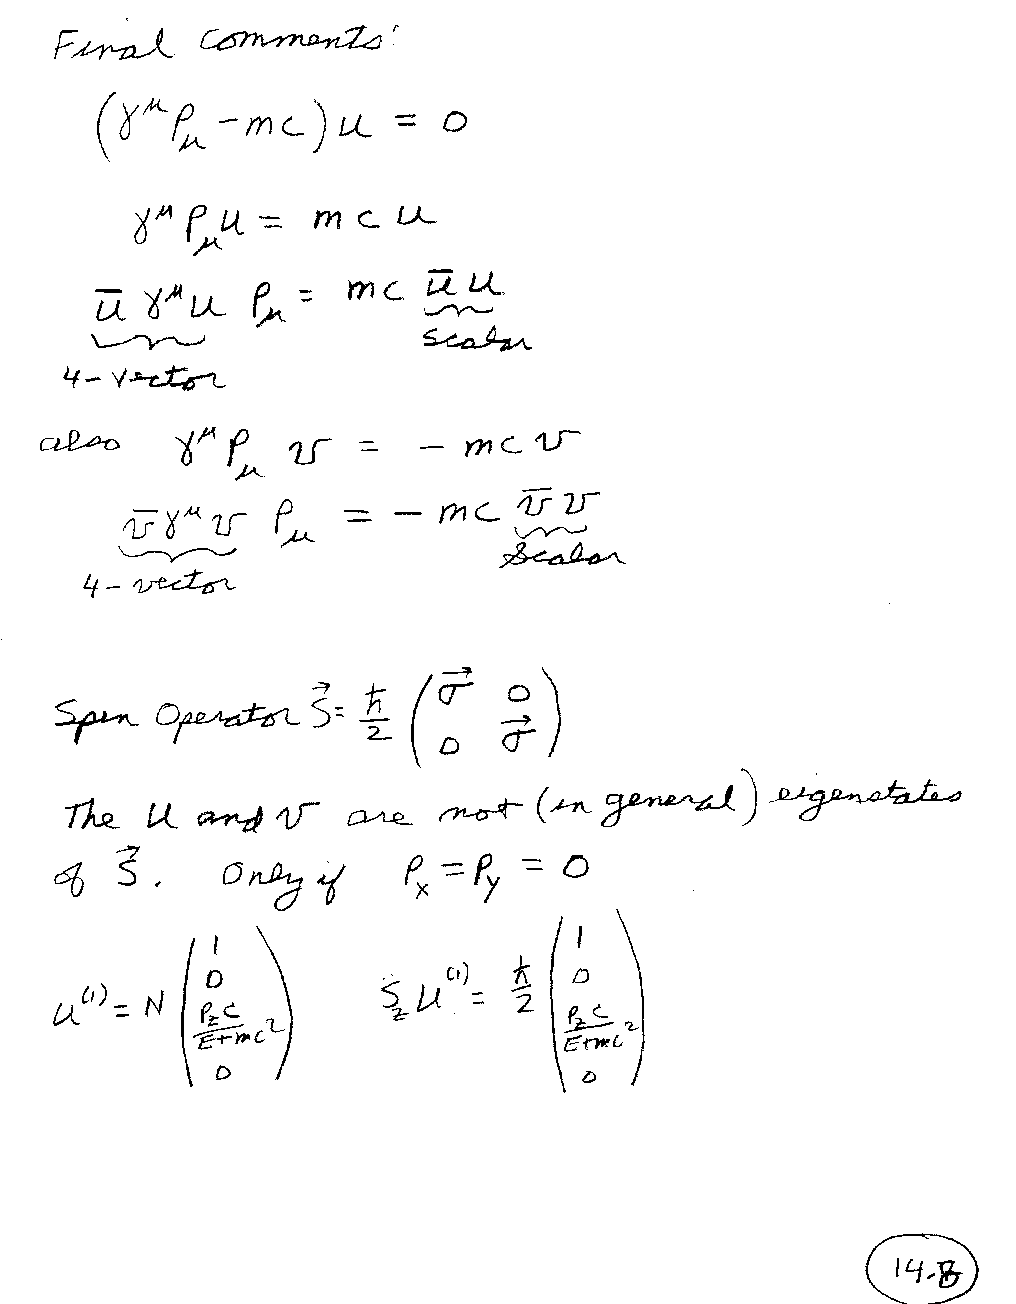 Final comments:
(γ^μ P_μ - mc) u = 0
γ^μ P_μ u = mc u
ū γ^μ u P_μ = mc ū u
scalar
4-vector
also γ^μ P_μ v = - mc v
v̄ γ^μ v P_μ = - mc v̄ v
scalar
4-vector
Spin Operator S⃗ = ħ/2 (σ⃗ 0
0 σ⃗)
The u and v are not (in general) eigenstates
of S⃗. Only if P_x = P_y = 0
u^(1) = N (1 0 P_z c / E+mc² 0) S_z u^(1) = ħ/2 (1 0 P_z c / E+mc² 0)